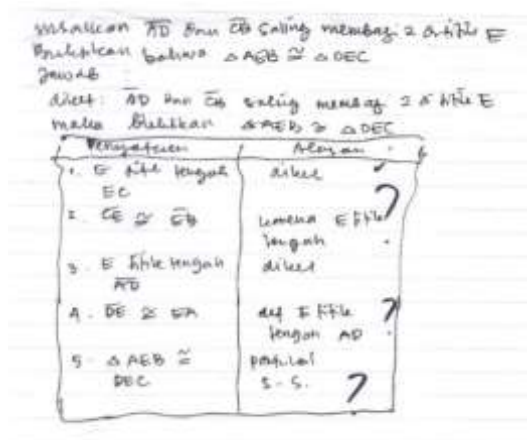 misalkan AD dan CB saling membagi 2 di titik E
Buktikan bahwa △AEB ≅ △DEC
Jawab :
diket : AD dan CB saling membagi 2 di titik E
maka Buktikan △AEB ≅ △DEC
Pernyataan Alasan
1. E titik tengah diket ?
EC
2. CE ≅ EB karena E titik ?
tengah
3. E titik tengah diket
AD
4. DE ≅ EA def E titik ?
tengah AD
5. △AEB ≅ postulat
DEC S-S. ?